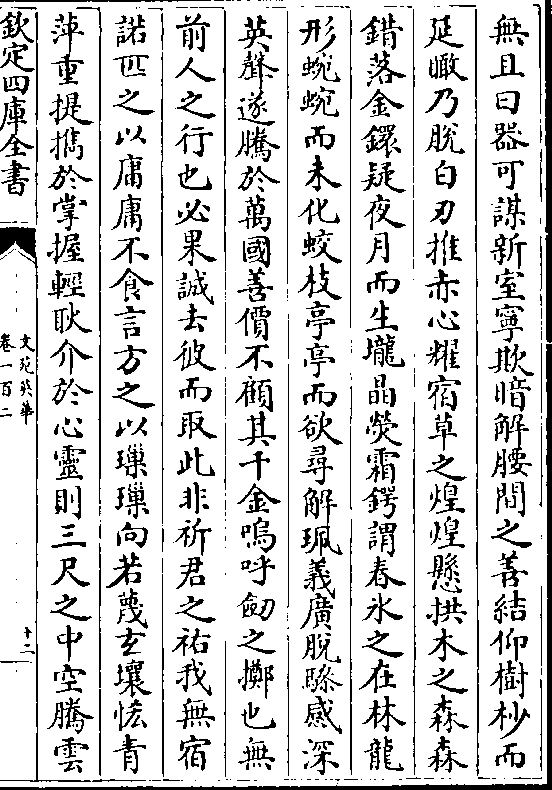 無且曰器可謀新室寧欺暗解腰間之善結仰樹杪而
延瞰乃脫白刃推赤心耀宿草之煌煌懸拱木之森森
錯落金鐶疑夜月而生壠晶熒霜鍔謂春氷之在林龍
形蜿蜿而未化蛟枝亭亭而欲尋解珮義廣脫驂感深
英聲遂騰於萬國善價不顧其千金嗚呼劒之擲也無
前人之行也必果誠去彼而取此非祈君之祐我無宿
諾匹之以庸庸不食言方之以璅璅向若蔑玄壤恡青
萍重提擕於掌握輕耿介於心靈則三尺之中空騰雲
欽定四庫全書
文苑英華
卷一百二
十二